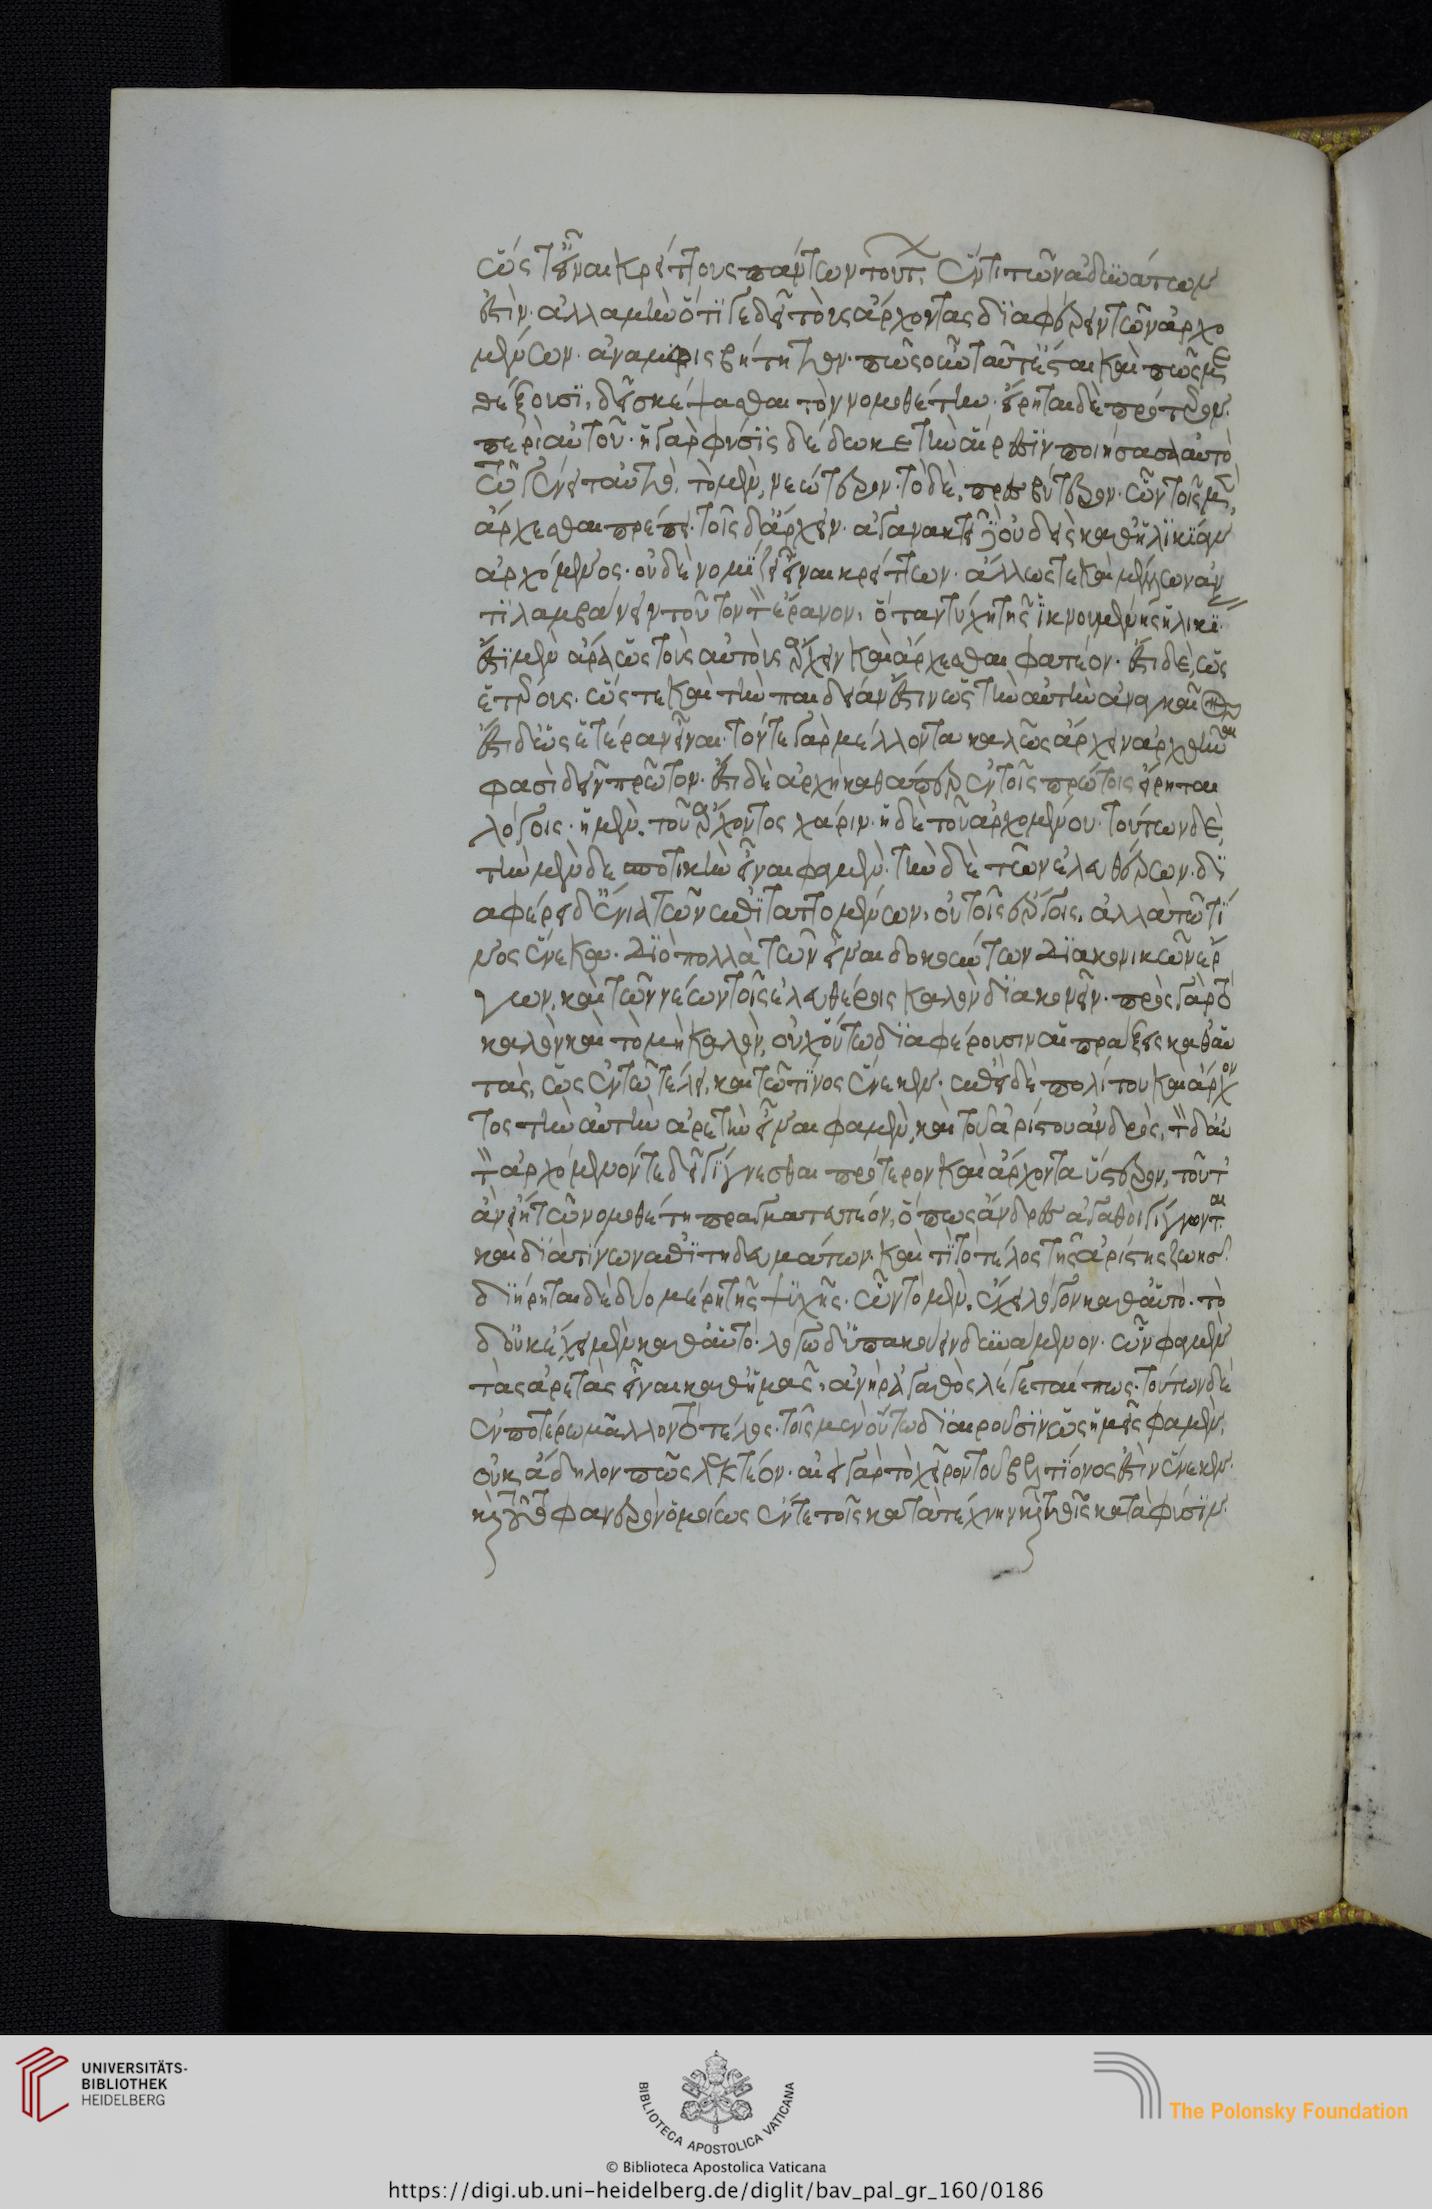 ὥστ' εἶναι κρείττους πάντων τούτων ἕν τι τῶν ἀδυνάτων
ἐστίν. ἀλλὰ μὴν ὅτι γε δεῖ τοὺς ἄρχοντας διαφέρειν τῶν ἀρχο
μένων. ἀναμφισβήτητον. πῶς οὖν ταῦτ' ἔσται καὶ πῶς με
θέξουσι, δεῖ σκέψασθαι τὸν νομοθέτην. εἴρηται δὲ πρότερον
περὶ αὐτοῦ. ἡ γὰρ φύσις δέδωκε τὴν αἵρεσιν ποιήσασα αὐτὸ
τῷ γένει ταὐτὸν, τὸ μὲν, νεώτερον. τὸ δὲ, πρεσβύτερον. ὧν τοῖς μὲν,
ἄρχεσθαι πρέπει. τοῖς δ' ἄρχειν. ἀγανακτεῖ δὲ οὐδεὶς καθ' ἡλικίαν
ἀρχόμενος. οὐδὲ νομίζει εἶναι κρείττων. ἄλλως τε καὶ μέλλων ἀν
τιλαμβάνειν τοῦτον τὸν ἔρανον, ὅταν τύχῃ τῆς ἱκνουμένης ἡλικίας.
ἔστι μὲν ἄρα ὡς τοὺς αὐτοὺς ἄρχειν καὶ ἄρχεσθαι φατέον. ἔστι δὲ, ὡς
ἑτέρους. ὥστε καὶ τὴν παιδείαν ἔστιν ὡς τὴν αὐτὴν ἀναγκαῖον
ἔστι δ' ὡς ἑτέραν εἶναι. τόν τε γὰρ μέλλοντα καλῶς ἄρχειν ἀρχθῆναι
φασὶ δεῖν πρῶτον. ἔστι δὲ ἀρχὴ καθάπερ ἐν τοῖς πρώτοις εἴρηται
λόγοις. ἡ μὲν, τοῦ ἄρχοντος χάριν. ἡ δὲ τοῦ ἀρχομένου. τούτων δὲ,
τὴν μὲν δεσποτικὴν εἶναι φαμὲν. τὴν δὲ τῶν ἐλευθέρων. δι
αφέρει δ' ἔνια τῶν ἐπιταττομένων, οὐ τοῖς ἔργοις, ἀλλὰ τῷ τί
νος ἕνεκεν. διὸ πολλὰ τῶν εἶναι δοκούντων διακονικῶν ἔρ
γων, καὶ τῶν νέων τοῖς ἐλευθέροις καλὸν διακονεῖν. πρὸς γὰρ τὸ
καλὸν καὶ τὸ μὴ καλὸν, οὐχ οὕτω διαφέρουσιν αἱ πράξεις καθ' αὑ
τὰς, ὡς ἐν τῷ τέλει, καὶ τῷ τίνος ἕνεκεν. ἐπεὶ δὲ πολίτου καὶ ἄρχον
τος τὴν αὐτὴν ἀρετὴν εἶναι φαμὲν, καὶ τοῦ ἀρίστου ἀνδρὸς, τὸν δ' αὐ
τὸν ἀρχόμενόν τε δεῖ γίγνεσθαι πρότερον καὶ ἄρχοντα ὕστερον, τοῦτ'
ἂν εἴη τῷ νομοθέτῃ πραγματευτέον, ὅπως ἄνδρες ἀγαθοὶ γίγνονται
καὶ διὰ τίνων ἐπιτηδευμάτων. καὶ τί τὸ τέλος τῆς ἀρίστης ζωῆς.
διῄρηται δὲ δύο μέρη τῆς ψυχῆς. ὧν τὸ μὲν, ἔχει λόγον καθ' αὑτό. τὸ
δ' οὐκ ἔχει μὲν καθ' αὑτό. λόγῳ δ' ὑπακούειν δυνάμενον. ὧν φαμὲν
τὰς ἀρετὰς εἶναι καθ' ἃς, ἀνὴρ ἀγαθὸς λέγεταί πως. τούτων δὲ
ἐν ποτέρῳ μᾶλλον τὸ τέλος. τοῖς μὲν οὕτω διαιροῦσιν ὡς ἡμεῖς φαμὲν,
οὐκ ἄδηλον πῶς λεκτέον. αἰεὶ γὰρ τὸ χεῖρον τοῦ βελτίονος ἐστὶν ἕνεκεν.
καὶ τοῦτο φανερὸν ὁμοίως ἔν τε τοῖς κατὰ τέχνην καὶ τοῖς κατὰ φύσιν.
UNIVERSITÄTS-
BIBLIOTHEK
HEIDELBERG
BIBLIOTECA APOSTOLICA VATICANA
The Polonsky Foundation
© Biblioteca Apostolica Vaticana
https://digi.ub.uni-heidelberg.de/diglit/bav_pal_gr_160/0186